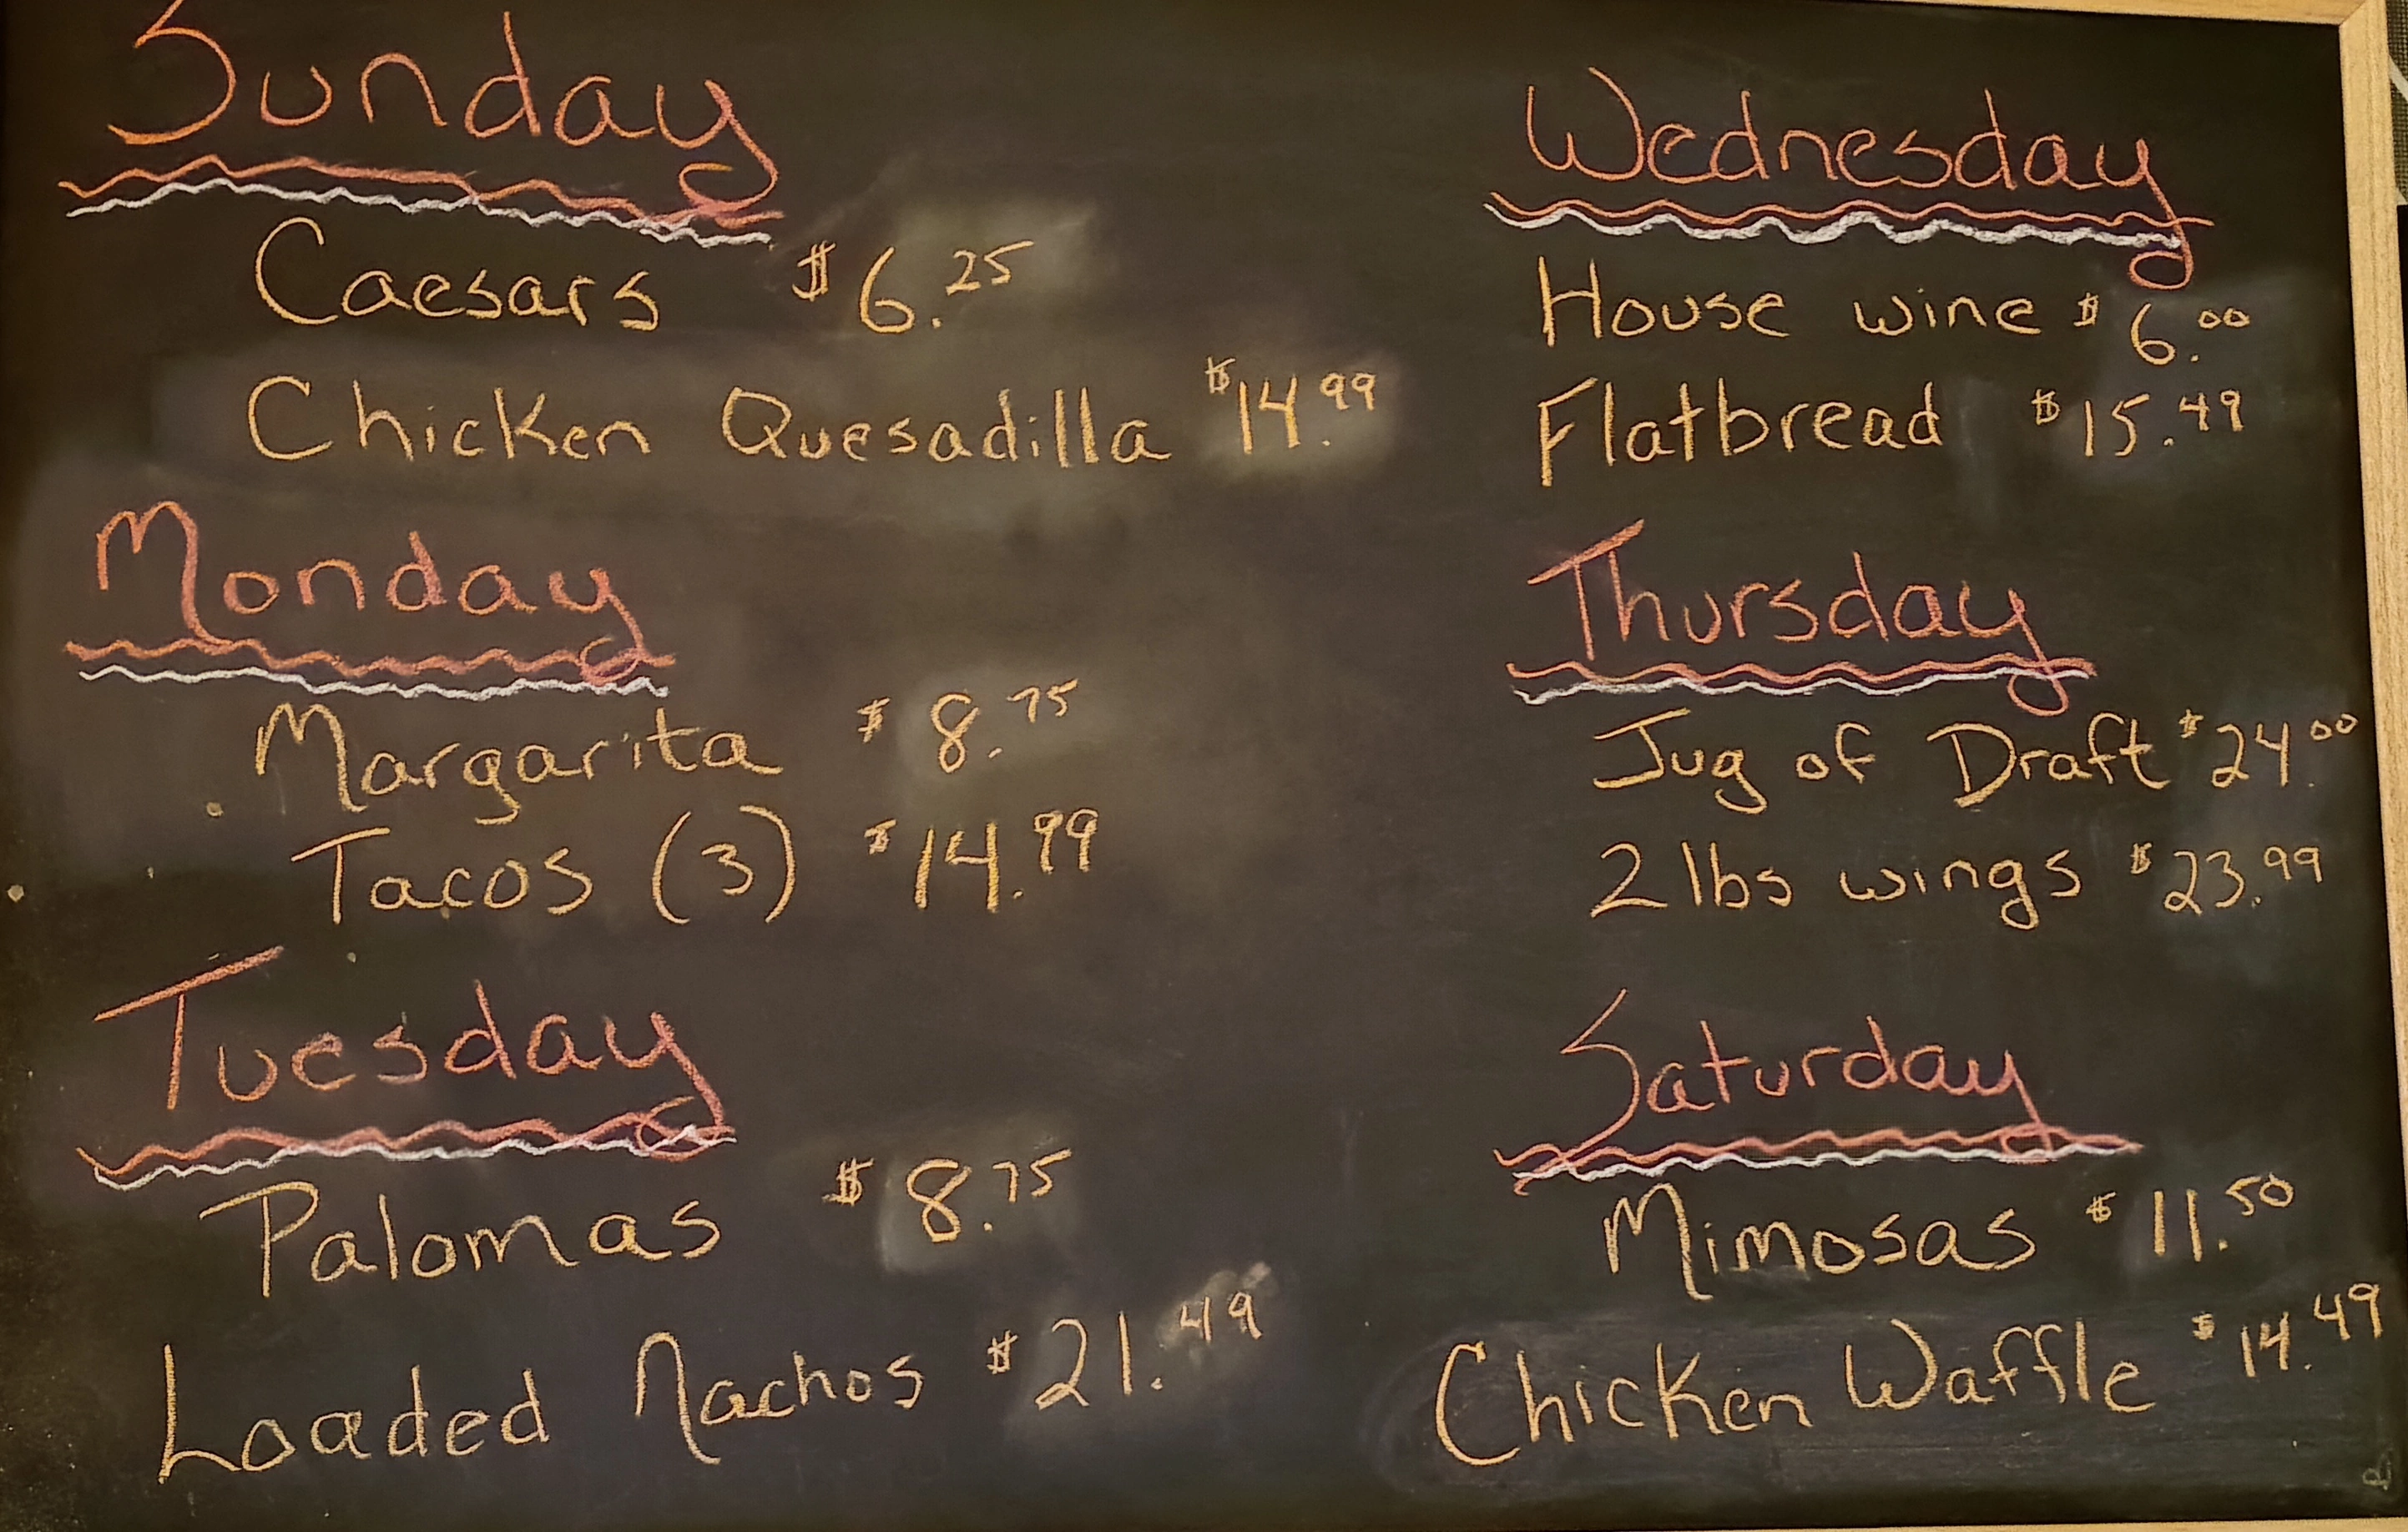 Sunday
Caesars $6.25
Chicken Quesadilla $14.99
Monday
Margarita $8.75
Tacos (3) $14.99
Tuesday
Palomas $8.75
Loaded Nachos $21.49
Wednesday
House wine $6.00
Flatbread $15.49
Thursday
Jug of Draft $24.00
2 lbs wings $23.99
Saturday
Mimosas $11.50
Chicken Waffle $14.49